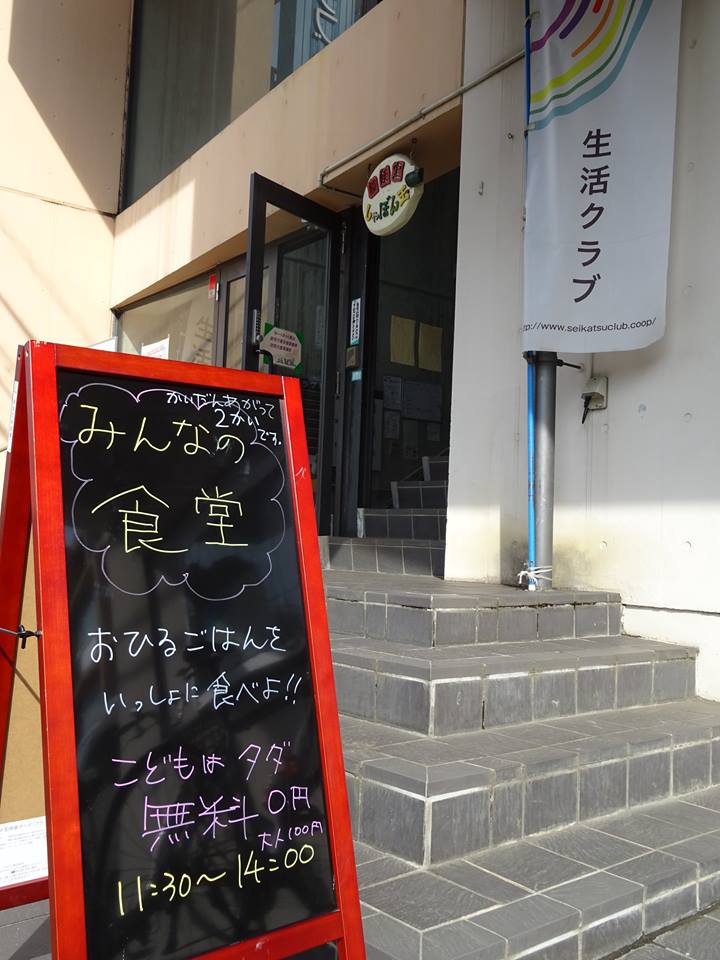 生活クラブ
http://www.seikatsuclub.coop/
しゃぼん玉
かいだんあがって
2かい
です。
みんなの
食堂
おひるごはんを
いっしょに食べよ!!
こどもはタダ
無料0円
大人100円
11:30〜14:00